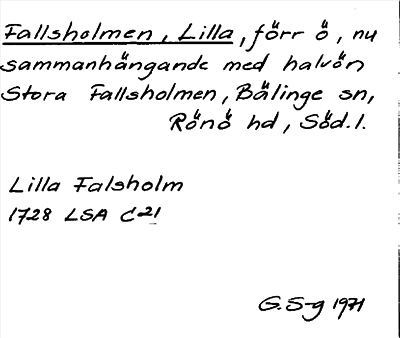 Fallsholmen, Lilla, förr ö, nu
sammanhängande med halvön
Stora Fallsholmen, Bälinge sn,
Rönö hd, Söd.l.
Lilla Falsholm
1728 LSA C 21
G. S-g 1971